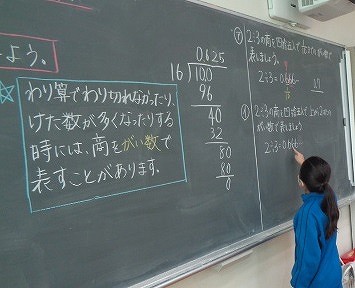 よう。
わり算でわり切れなかったり、
けた数が多くなったりする
時には、商をがい数で
表すことがあります。
0.625
16)10.0
96
40
32
80
80
0
㋐ 2÷3の商を四捨五入で
表しましょう。
2÷3=0.666
㋑ 2÷3の商を四捨五入で上から2けたの
がい数で表しましょう
2÷3=0.666